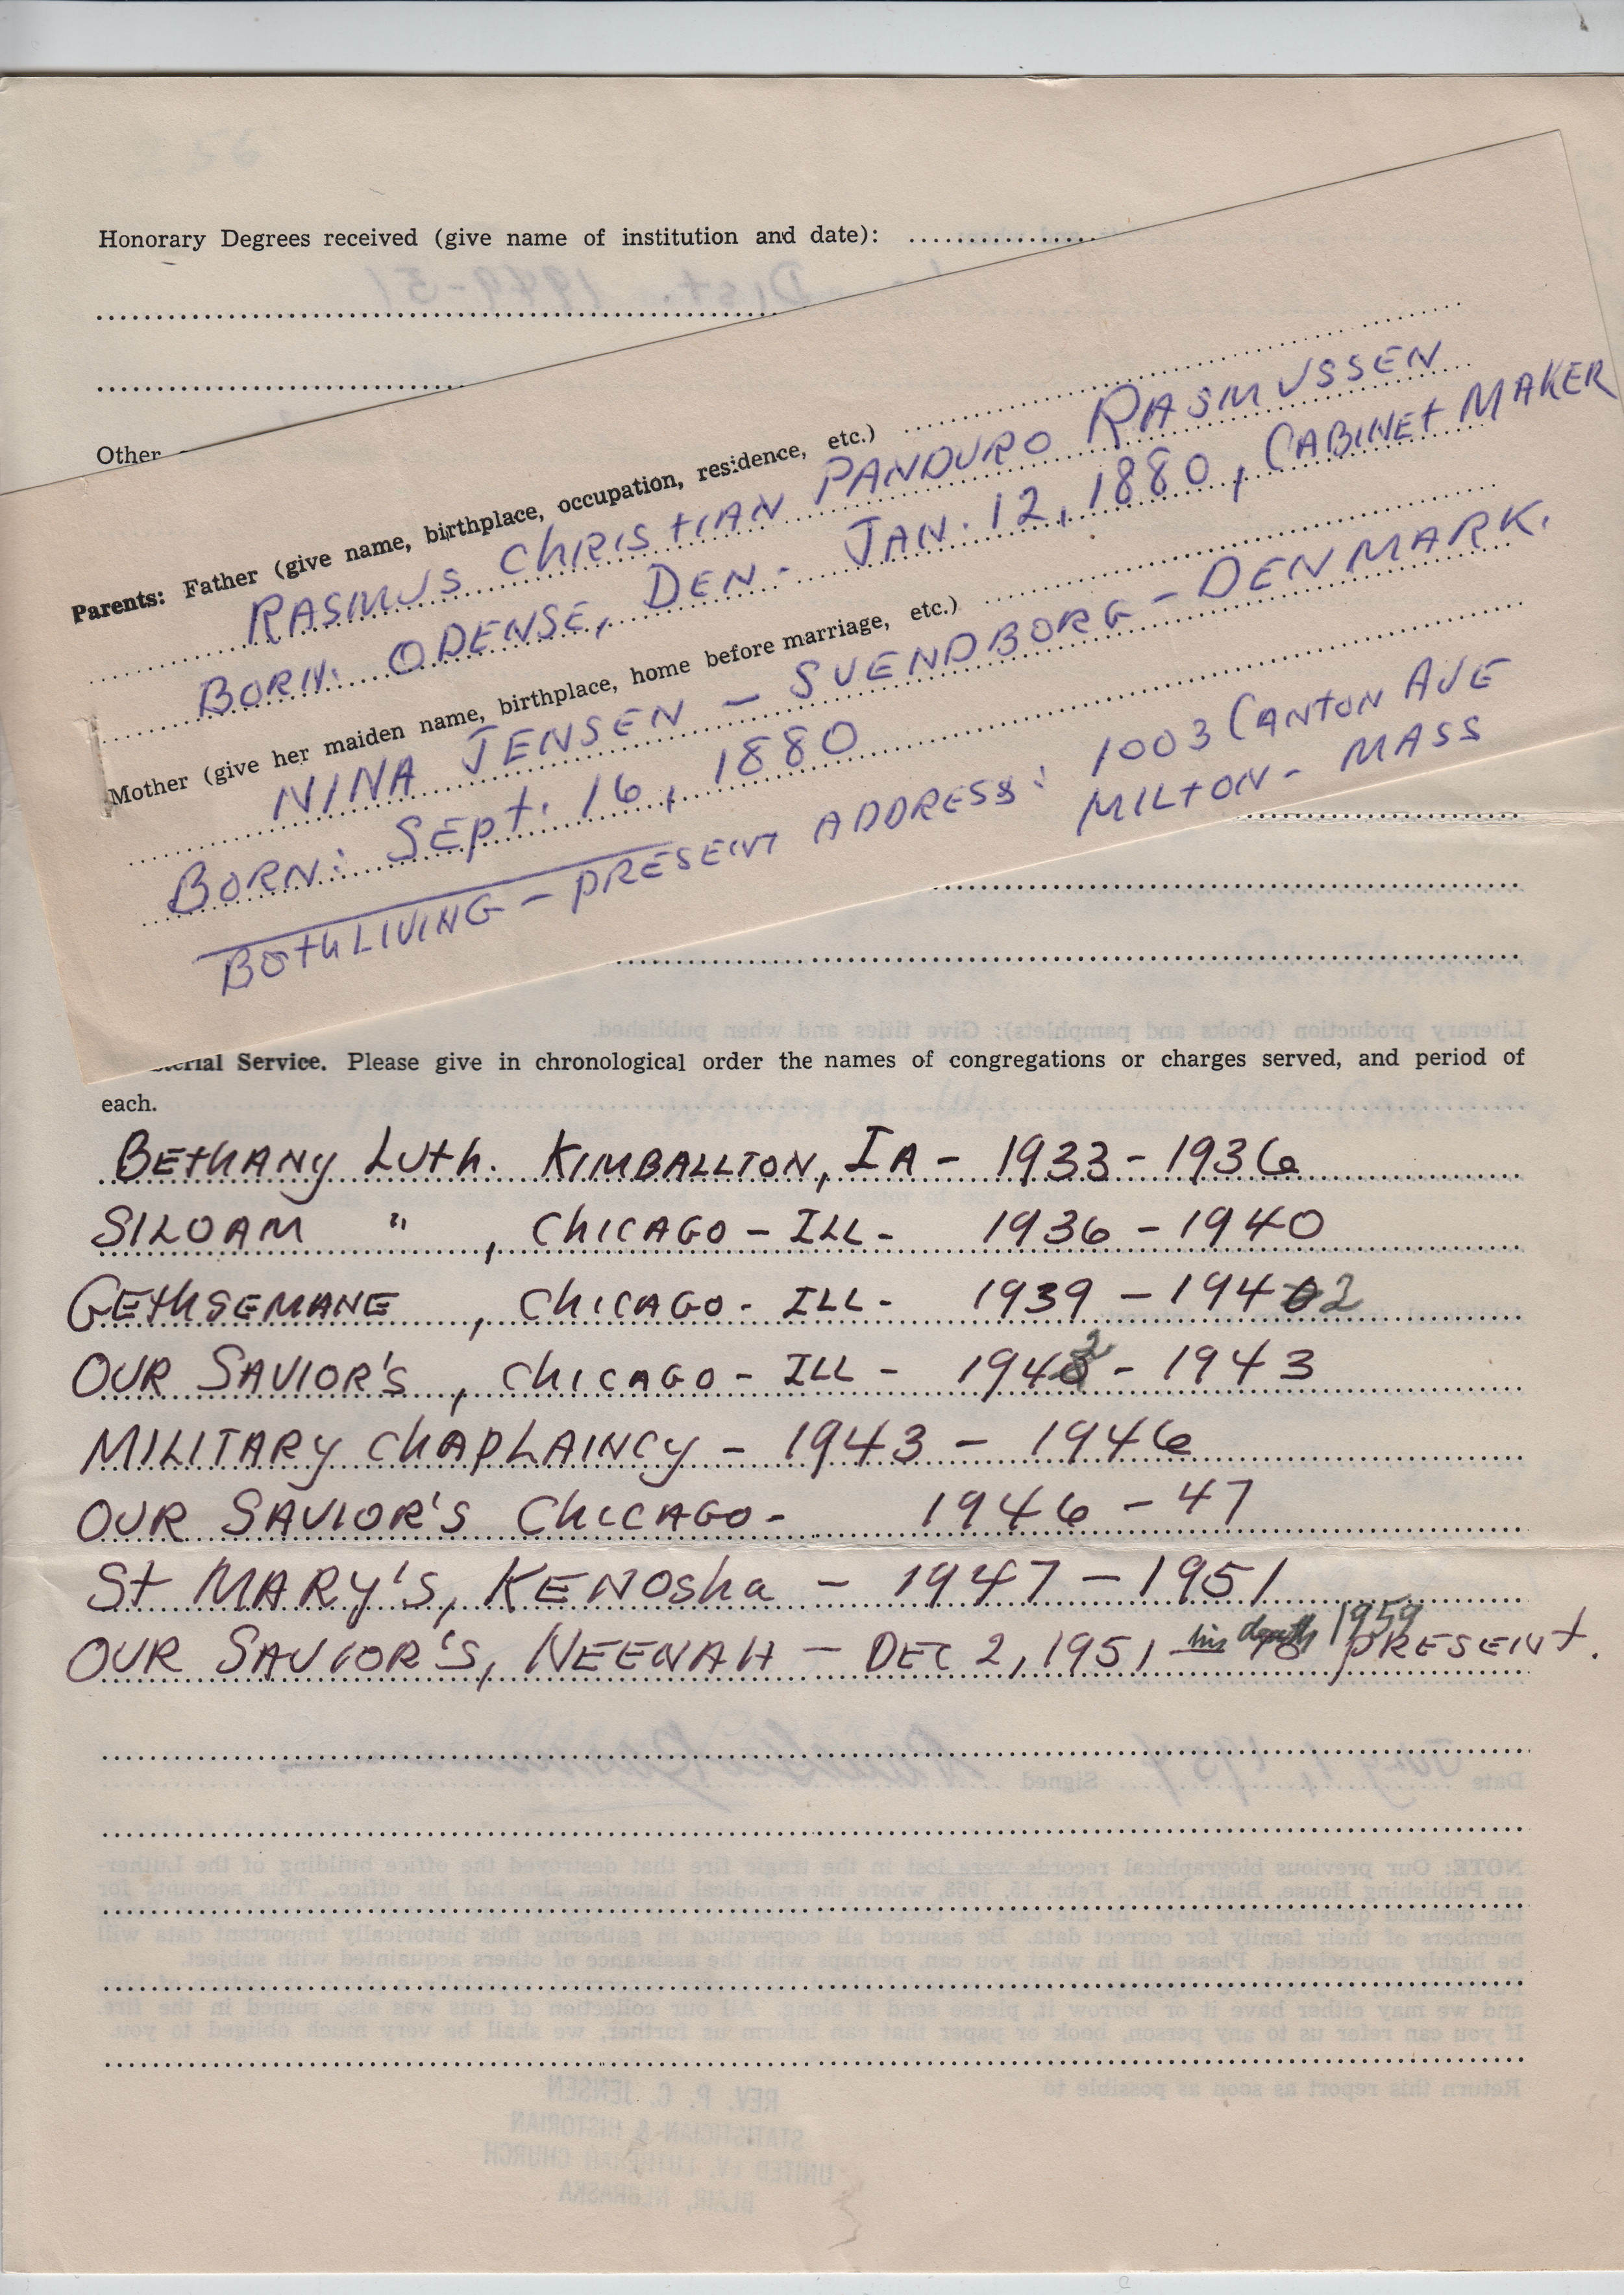 Honorary Degrees received (give name of institution and date):
Other
Parents: Father (give name, birthplace, occupation, residence, etc.)
RASMUS CHRISTIAN PANDURO RASMUSSEN
BORN: ODENSE, DEN- JAN. 12, 1880, CABINET MAKER
Mother (give her maiden name, birthplace, home before marriage, etc.)
NINA JENSEN - SVENDBORG - DENMARK.
BORN: SEPT. 16, 1880
BOTH LIVING - PRESENT ADDRESS: 1003 CANTON AVE
MILTON - MASS
terial Service. Please give in chronological order the names of congregations or charges served, and period of
each.
BETHANY LUTH. KIMBALLTON, IA - 1933 - 1936
SILOAM " , CHICAGO - ILL - 1936 - 1940
GETHSEMANE , CHICAGO - ILL - 1939 - 1942
OUR SAVIOR'S , CHICAGO - ILL - 1942 - 1943
MILITARY CHAPLAINCY - 1943 - 1946
OUR SAVIOR'S CHICAGO - 1946 - 47
ST MARY'S, KENOSHA - 1947 - 1951
his death 1959
OUR SAVIOR'S, NEENAH - DEC 2, 1951 - to PRESENT.